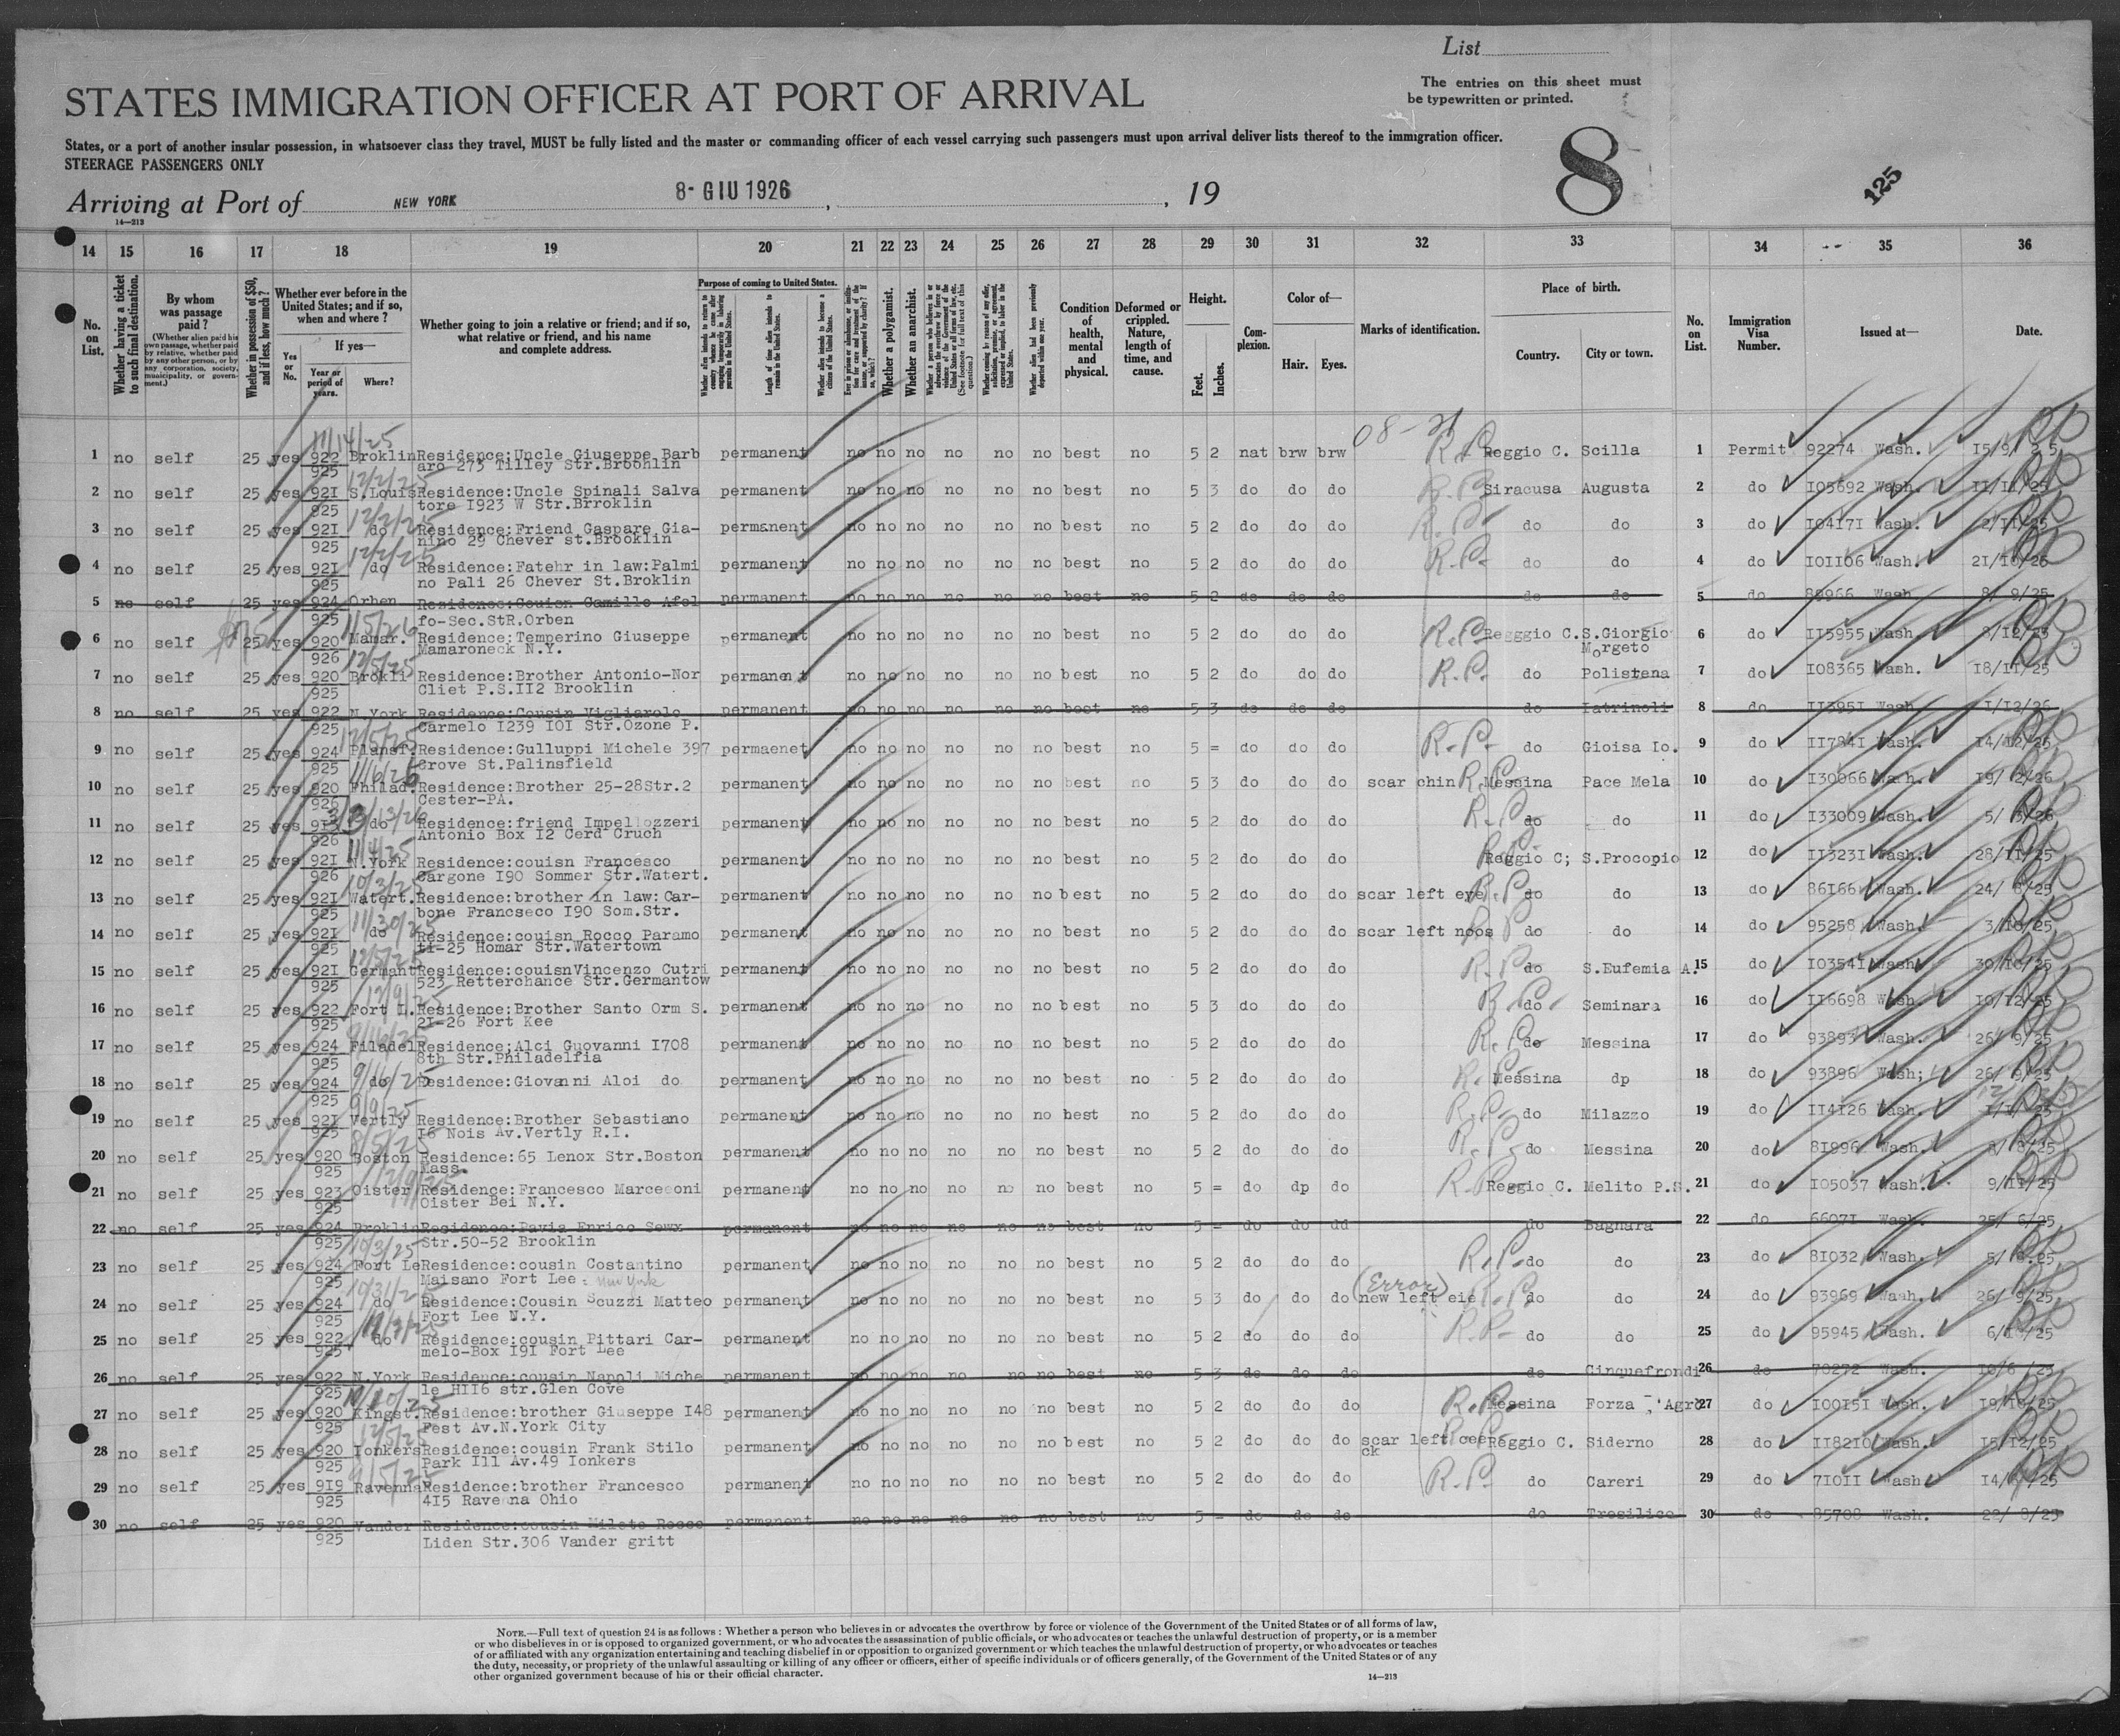 List
The entries on this sheet must
be typewritten or printed.
STATES IMMIGRATION OFFICER AT PORT OF ARRIVAL
States, or a port of another insular possession, in whatsoever class they travel, MUST be fully listed and the master or commanding officer of each vessel carrying such passengers must upon arrival deliver lists thereof to the immigration officer.
STEERAGE PASSENGERS ONLY
8
125
Arriving at Port of NEW YORK 8- GIU 1926 , 19
14—213
14 15 16 17 18 19 20 21 22 23 24 25 26 27 28 29 30 31 32 33 34 35 36
No. on List.
Whether having a ticket to such final destination.
By whom was passage paid?
(Whether alien paid his own passage, whether paid by relative, whether paid by any other person, or by any corporation, society, municipality, or government.)
Whether in possession of $50, and if less, how much?
Whether ever before in the United States; and if so, when and where?
Yes or No.
If yes—
Year or period of years.
Where?
Whether going to join a relative or friend; and if so, what relative or friend, and his name and complete address.
Purpose of coming to United States.
Length of time alien intends to remain in the United States.
Whether alien intends to become a citizen of the United States.
Whether a polygamist.
Whether an anarchist.
Condition of health, mental and physical.
Deformed or crippled. Nature, length of time, and cause.
Height.
Feet.
Inches.
Complexion.
Color of—
Hair.
Eyes.
Marks of identification.
Place of birth.
Country.
City or town.
No. on List.
Immigration Visa Number.
Issued at—
Date.
08-21
11/14/25
1 no self 25 yes 922 Broklin Residence:Uncle Giuseppe Barb permanent no no no no no no best no 5 2 nat brw brw R.P. Reggio C. Scilla 1 Permit 92274 Wash. 15/9/25
925 aro 273 Tilley Str.Broohlin
12/2/25
2 no self 25 yes 921 S.Louis Residence:Uncle Spinali Salva permanent no no no no no no best no 5 3 do do do R.P. Siracusa Augusta 2 do 105692 Wash. 11/11/25
925 tore 1923 W Str.Brroklin
12/2/25
3 no self 25 yes 921 do Residence:Friend Gaspare Gia- permanent no no no no no no best no 5 2 do do do R.P. do do 3 do 104171 Wash. 2/11/25
925 nino 29 Chever st.Brooklin
12/2/25
4 no self 25 yes 921 do Residence:Fatehr in law:Palmi permanent no no no no no no best no 5 2 do do do R.P. do do 4 do 101106 Wash. 21/10/26
925 no Pali 26 Chever St.Broklin
5 no self 25 yes 924 Orben Residence:Couisn Camillo Afol permanent no no no no no no best no 5 2 do do do do do 5 do 89966 Wash 8/ 9/25
925 fo-Sec.StR.Orben
1/5/26
6 no self 25 yes 920 Mamar. Residence:Temperino Giuseppe permanent no no no no no no best no 5 2 do do do R.P. Regggio C. S.Giorgio 6 do 115955 Wash. 8/12/25
926 Mamaroneck N.Y. Morgeto
12/5/25
7 no self 25 yes 920 Brokli Residence:Brother Antonio-Nor permanent no no no no no no best no 5 2 do do do R.P. do Polistena 7 do 108365 Wash. 18/11/25
925 Cliet P.S.112 Brooklin
8 no self 25 yes 922 N.York Residence:Cousin Vigliarolo permanent no no no no no no best no 5 3 do do do do Iatrinoli 8 do 113951 Wash 1/12/26
925 Carmelo 1239 101 Str.Ozone P.
12/5/25
9 no self 25 yes 924 Plansf. Residence:Gulluppi Michele 397 permaenet no no no no no no best no 5 = do do do R.P. do Gioisa Io. 9 do 117841 Wash. 14/12/25
925 Grove St.Palinsfield
10 no self 25 yes 920 Philad. Residence:Brother 25-28Str.2 permanent no no no no no no best no 5 3 do do do scar chin R.P. Messina Pace Mela 10 do 130066 Wash. 19/ 2/26
926 Cester-PA.
11 no self 25 yes 913 do Residence:friend Impellozzeri permanent no no no no no no best no 5 2 do do do R.P. do do 11 do 133009 Wash. 5/ 3/26
926 Antonio Box 12 Cerd Cruch
11/4/25
12 no self 25 yes 921 N.York Residence:couisn Francesco permanent no no no no no no best no 5 2 do do do R.P. Reggio C; S.Procopio 12 do 113231 Wash. 28/11/25
926 Cargone 190 Sommer Str.Watert.
10/3/25
13 no self 25 yes 921 Watert. Residence:brother in law:Car- permanent no no no no no no best no 5 2 do do do scar left eye R.P. do do 13 do 86166 Wash. 24/ 8/25
925 bone Francseco 190 Som.Str.
11/30/25
14 no self 25 yes 921 do Residence:couisn Rocco Paramo permanent no no no no no no best no 5 2 do do do scar left noos R.P. do do 14 do 95258 Wash. 3/10/25
925 ti-25 Homar Str.Watertown
12/5/25
15 no self 25 yes 921 Germant Residence:couisnVincenzo Cutri permanent no no no no no no best no 5 2 do do do R.P. do S.Eufemia A. 15 do 103541 Wash 30/10/25
925 523 Retterchance Str.Germantow
12/9/25
16 no self 25 yes 922 Fort L. Residence:Brother Santo Orm S. permanent no no no no no no best no 5 3 do do do R.P. do Seminara 16 do 116698 Wash. 10/12/25
925 21-26 Fort Kee
9/16/25
17 no self 25 yes 924 Filadel Residence;Alci Guovanni 1708 permanent no no no no no no best no 5 2 do do do R.P. do Messina 17 do 93893 Wash. 26/ 9/25
925 8th Str.Philadelfia
9/16/25
18 no self 25 yes 924 do Residence:Giovanni Aloi do permanent no no no no no no best no 5 2 do do do R.P. Messina dp 18 do 93896 Wash; 26/ 9/25
925
9/9/25
19 no self 25 yes 921 Vertly Residence:Brother Sebastiano permanent no no no no no no best no 5 2 do do do R.P. do Milazzo 19 do 114126 Wash.
925 16 Nois Av.Vertly R.I.
8/5/25
20 no self 25 yes 920 Boston Residence:65 Lenox Str.Boston permanent no no no no no no best no 5 2 do do do R.P. do Messina 20 do 81996 Wash. 8/25
925 Mass.
12/9/25
21 no self 25 yes 923 Oister Residence:Francesco Marceeoni permanent no no no no no no best no 5 = do dp do R.P. Reggio C. Melito P.S. 21 do 105037 Wash. 9/11/25
925 Oister Bei N.Y.
22 no self 25 yes 924 Broklin Residence:Pavia Enrico Sewx permanent no no no no no no best no 5 = do do dd do Bagnara 22 do 66071 Wash. 25/ 6/25
925 Str.50-52 Brooklin
10/3/25
23 no self 25 yes 924 Fort Le Residence:cousin Costantino permanent no no no no no no best no 5 2 do do do R.P. do do 23 do 81032 Wash.
925 Maisano Fort Lee: New York
10/31/25 (Error)
24 no self 25 yes 924 do Residence:Cousin Scuzzi Matteo permanent no no no no no no best no 5 3 do do do new left eie R.P. do do 24 do 93969 Wash. 26/ 9/25
925 Fort Lee N.Y.
25 no self 25 yes 922 do Residence:cousin Pittari Car- permanent no no no no no no best no 5 2 do do do R.P. do do 25 do 95945 Wash. 6/10/25
925 melo-Box 191 Fort Lee
26 no self 25 yes 922 N.York Residence:cousin Napoli Miche permanent no no no no no no best no 5 3 do do do do Cinquefrondi 26 do 70272 Wash. 10/6 /25
925 le H116 str.Glen Cove
27 no self 25 yes 920 Kingst. Residence:brother Giuseppe 148 permanent no no no no no no best no 5 2 do do do R.P. Messina Forza 'Agro 27 do 100151 Wash. 19/10/25
925 Pest Av.N.York City
12/5/25
28 no self 25 yes 920 Ionkers Residence:cousin Frank Stilo permanent no no no no no no best no 5 2 do do do scar left cee R.P. Reggio C. Siderno 28 do 118210 Wash. 15/12/25
925 Park Ill Av.49 Ionkers ck
9/5/25
29 no self 25 yes 919 Ravenna Residence:brother Francesco permanent no no no no no no best no 5 2 do do do R.P. do Careri 29 do 71011 Wash 14/ /25
925 415 Ravenna Ohio
30 no self 25 yes 920 Vander Residence:cousin Mileto Rocco permanent no no no no no no best no 5 = do do do do Tresilico 30 do 85708 Wash. 22/ 8/25
925 Liden Str.306 Vander gritt
NOTE.—Full text of question 24 is as follows: Whether a person who believes in or advocates the overthrow by force or violence of the Government of the United States or of all forms of law,
or who disbelieves in or is opposed to organized government, or who advocates the assassination of public officials, or who advocates or teaches the unlawful destruction of property, or is a member
of or affiliated with any organization entertaining and teaching disbelief in or opposition to organized government or which teaches the unlawful destruction of property, or who advocates or teaches
the duty, necessity, or propriety of the unlawful assaulting or killing of any officer or officers, either of specific individuals or of officers generally, of the Government of the United States or of any
other organized government because of his or their official character.
14—213